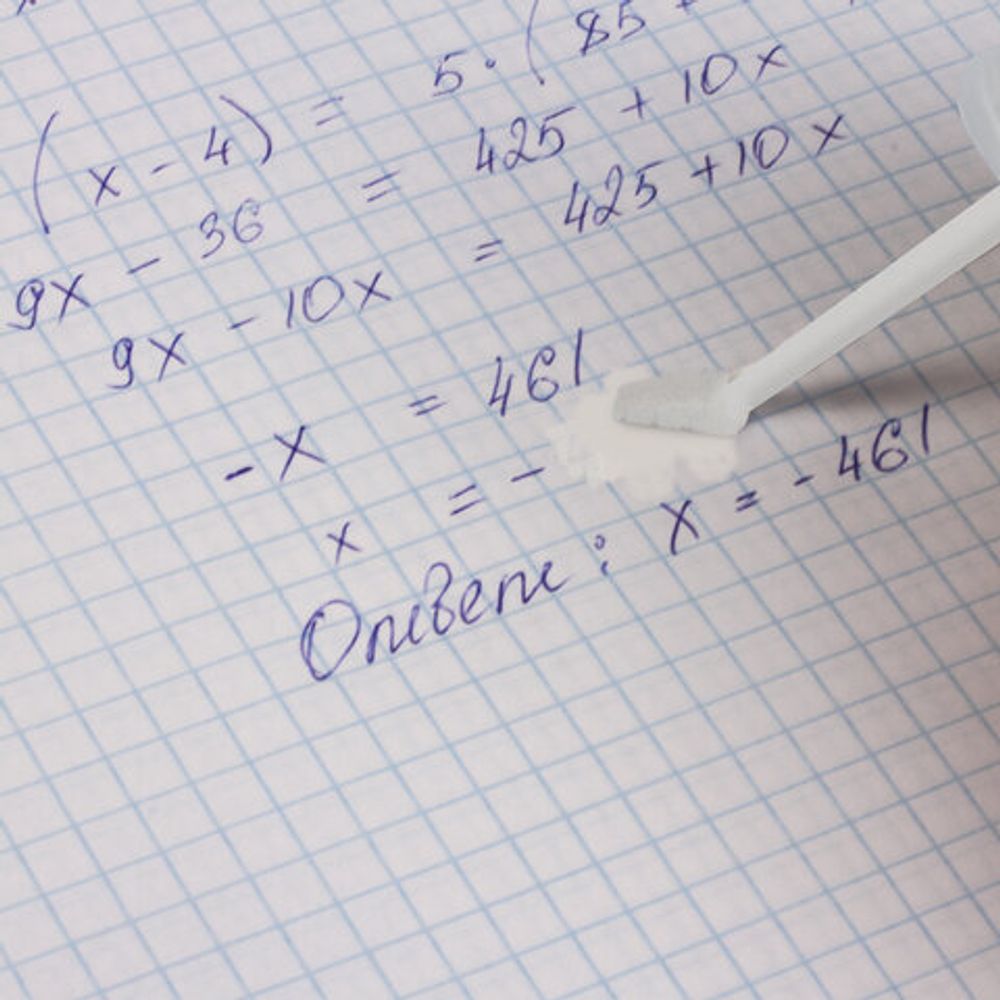 (x - 4) = 5 · ( 85
9x - 36 = 425 + 10x
9x - 10x = 425 + 10x
-x = 461
x = -
Ответ: x = - 461